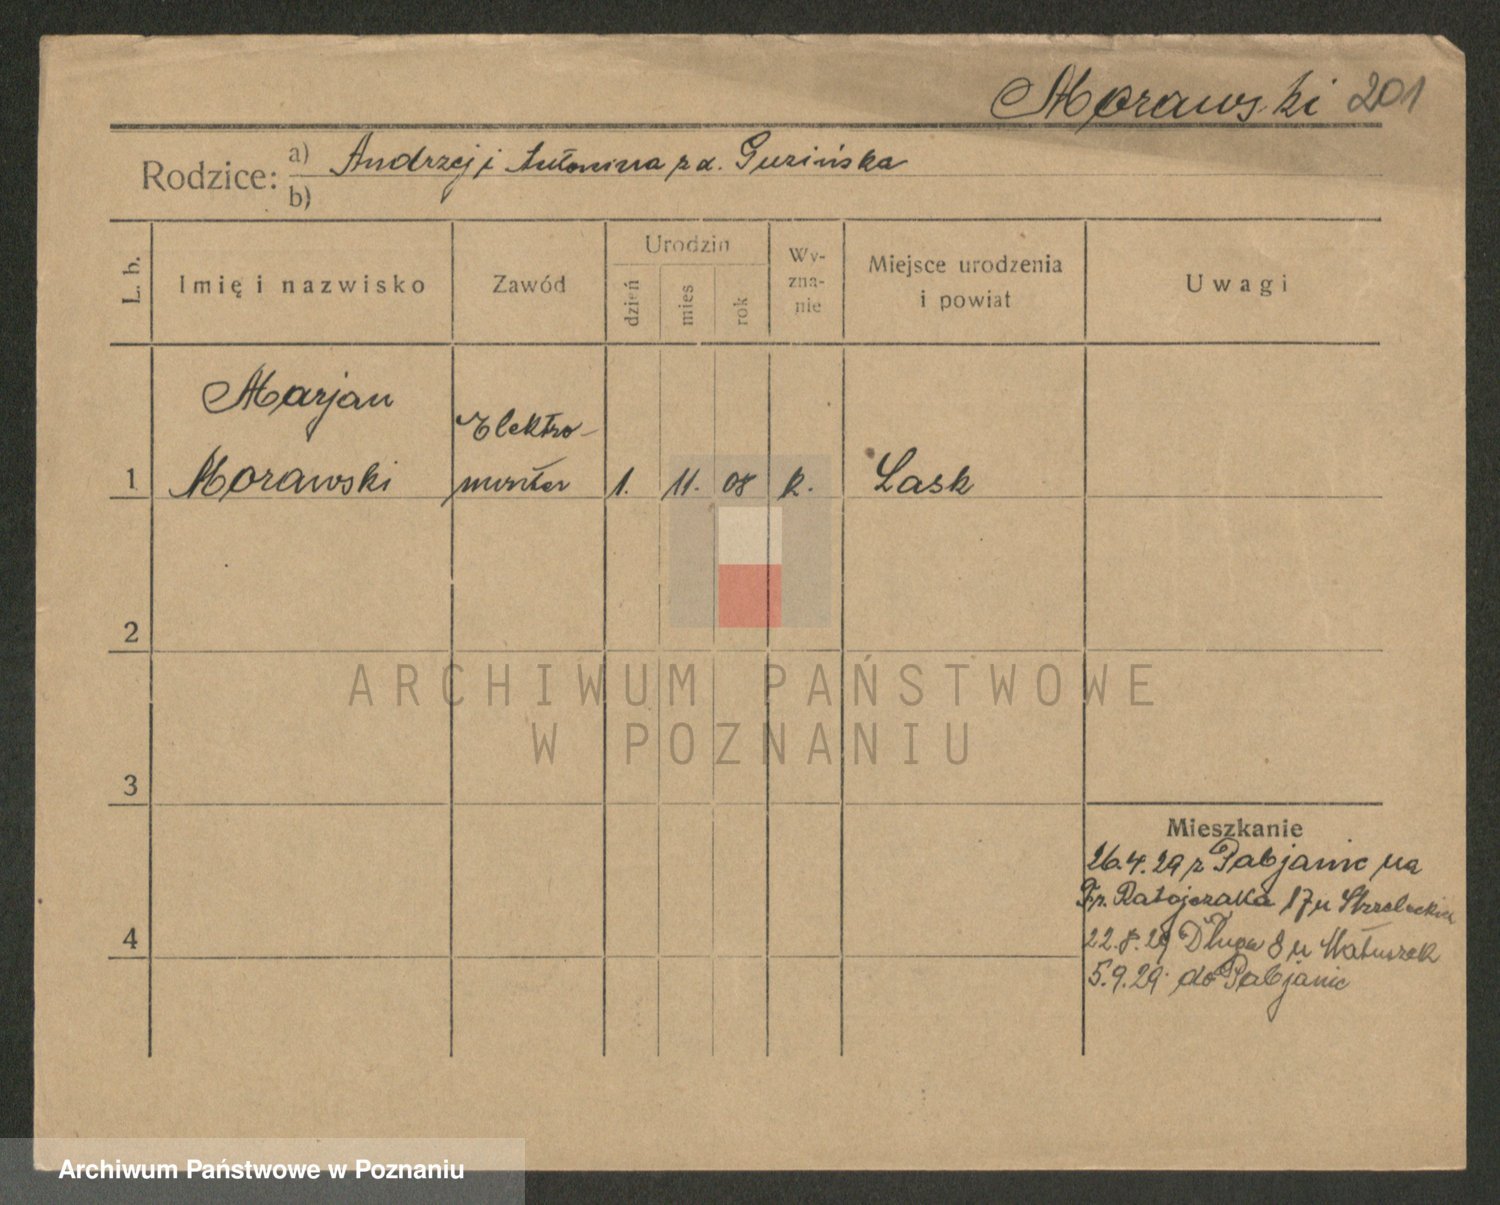 Morawski 201
Rodzice: a) Andrzej i Antonina z d. Guzińska
b)
L. b. Imię i nazwisko Zawód Urodzin dzień mies rok Wyznanie Miejsce urodzenia i powiat Uwagi
Marjan
Elektro-
1 Morawski monter 1. 11. 08 k. Lask
2
ARCHIWUM PAŃSTWOWE
W POZNANIU
3
Mieszkanie
26.4.29 z Pabjanic na
Fr. Ratajczaka 17 u
4
22.8.29 Długa 8 u Matuszak
5.9.29 do Pabjanic
Archiwum Państwowe w Poznaniu